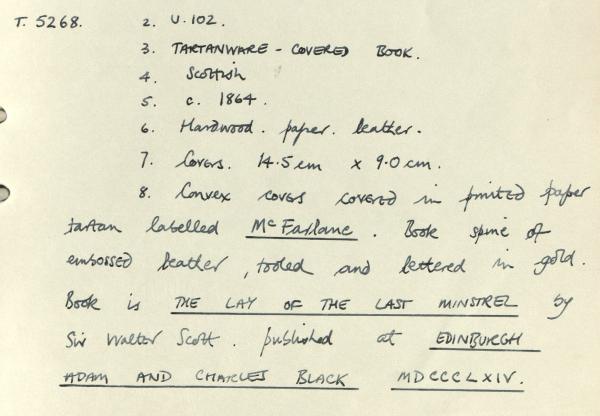 T. 5268. 2. U.102.
3. TARTANWARE - COVERED BOOK.
4. Scottish
5. c. 1864.
6. Hardwood. paper. leather.
7. Covers. 14.5 cm x 9.0 cm.
8. Convex covers covered in printed paper
tartan labelled McFarlane. Book spine of
embossed leather, tooled and lettered in gold.
Book is THE LAY OF THE LAST MINSTREL by
Sir Walter Scott. published at EDINBURGH
ADAM AND CHARLES BLACK MDCCCLXIV.